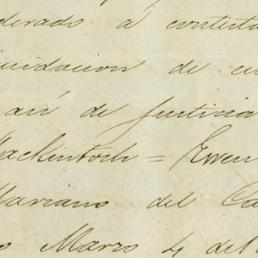 derado a contesta
cidacion de cu
asi de Justicia
Mackintosh = Ewen
Mariano del Ca
Marzo 4 de